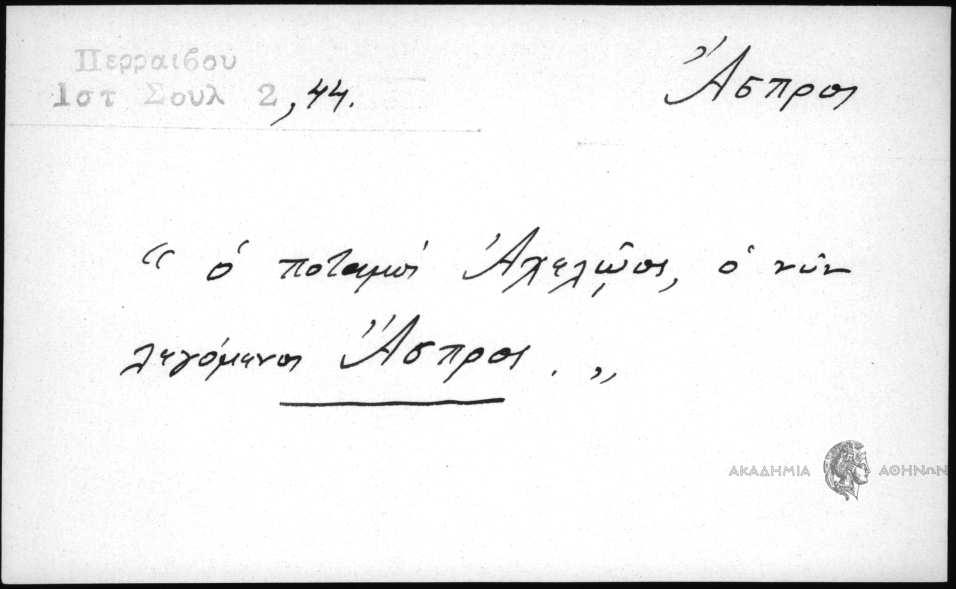 Περραιβου
Ιστ Σουλ 2, 44.
Ἄσπρος
“ ὁ ποταμὸς Ἀχελῷος, ὁ νῦν
λεγόμενος Ἄσπρος. „
ΑΚΑΔΗΜΙΑ ΑΘΗΝΩΝ